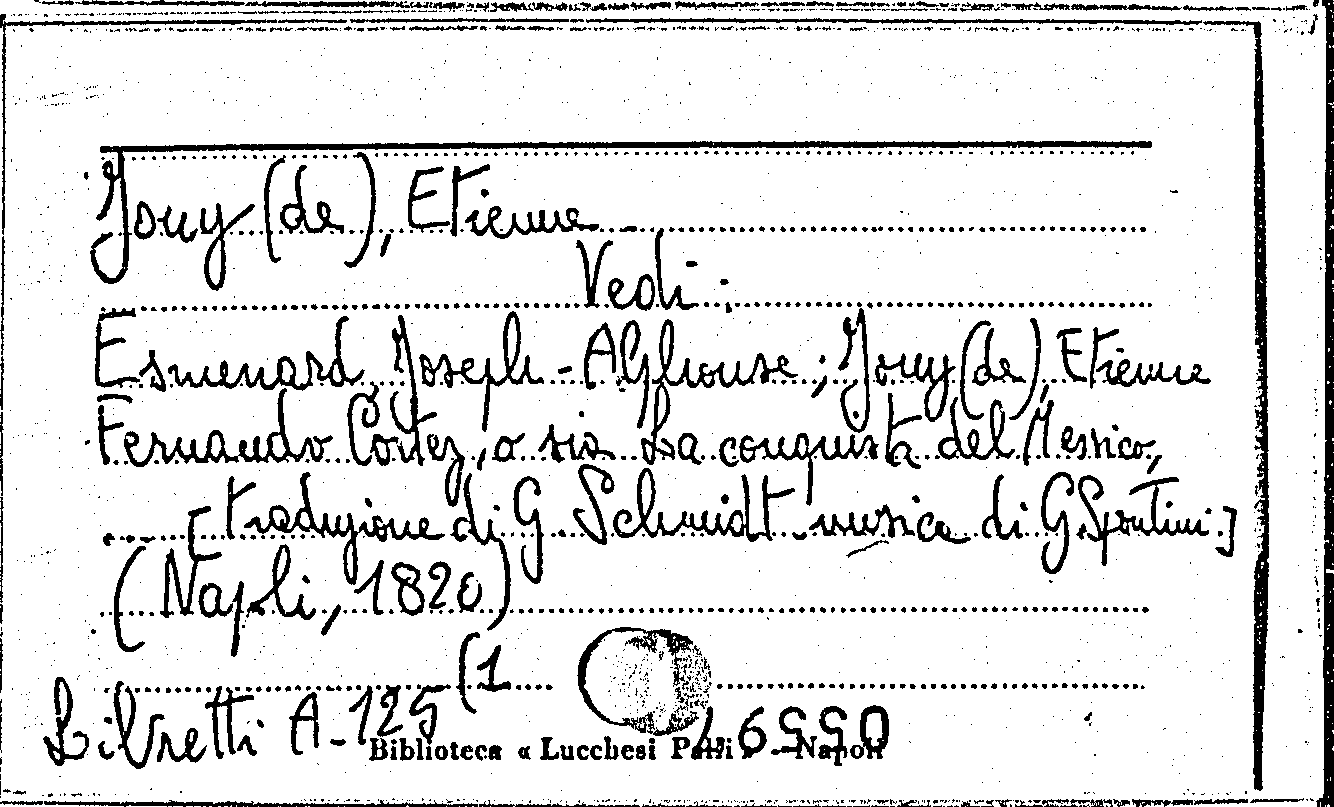 Jouy (de), Etienne
Vedi:
Esmenard, Joseph-Alphonse; Jouy (de), Etienne
Fernando Cortez, o sia La conquista del Messico,
... [traduzione di G. Schmidt musica di G. Spontini.]
(Napoli, 1820)
Libretti A-125 (1
Biblioteca « Lucchesi Palli » - Napoli